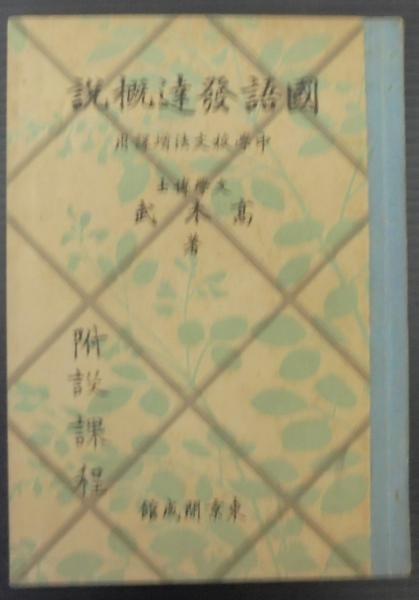 國語發達概說
中學校文法增課用
文學博士
高木武
著
附設課程
東京開成館